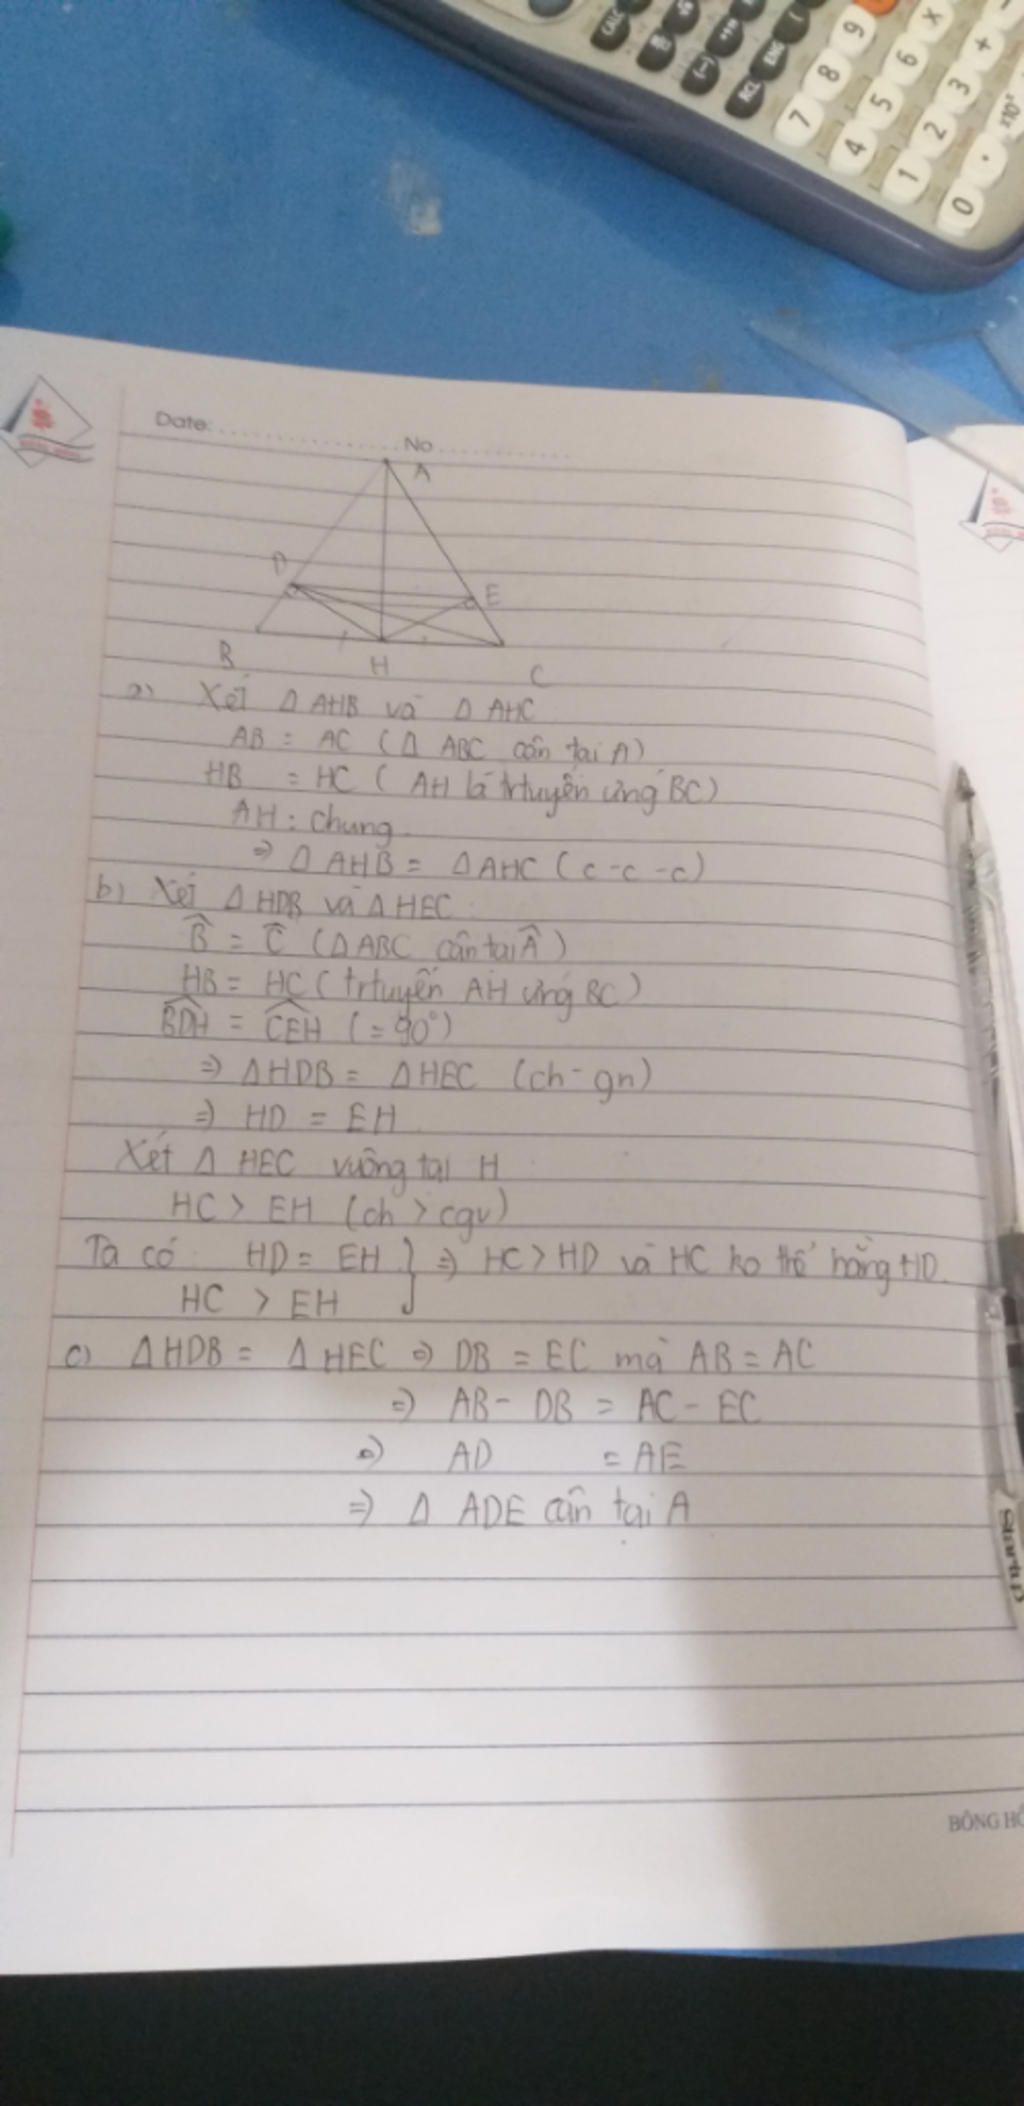 CALC
ENG
(
(-)
RCL
7
8
9
4
5
6
x
1
2
3
+
0
.
x10ˣ
Date: ................ No ................
A
D
E
B
H
C
a) Xét Δ AHB và Δ AHC
AB = AC ( Δ ABC cân tại A)
HB = HC ( AH là trtuyến ứng BC)
AH : chung
⇒ Δ AHB = Δ AHC ( c - c - c)
b) Xét Δ HDB và Δ HEC :
B̂ = Ĉ (Δ ABC cân tại Â)
HB = HC ( trtuyến AH ứng BC)
BDH = CEH (= 90°)
⇒ ΔHDB = ΔHEC (ch - gn)
⇒ HD = EH
Xét Δ HEC vuông tại H
HC > EH (ch > cgv)
Ta có HD = EH } ⇒ HC > HD và HC ko thể bằng HD.
HC > EH
c) ΔHDB = ΔHEC ⇒ DB = EC mà AB = AC
⇒ AB - DB = AC - EC
⇒ AD = AE
⇒ Δ ADE cân tại A
StartUp
BÔNG HỒ